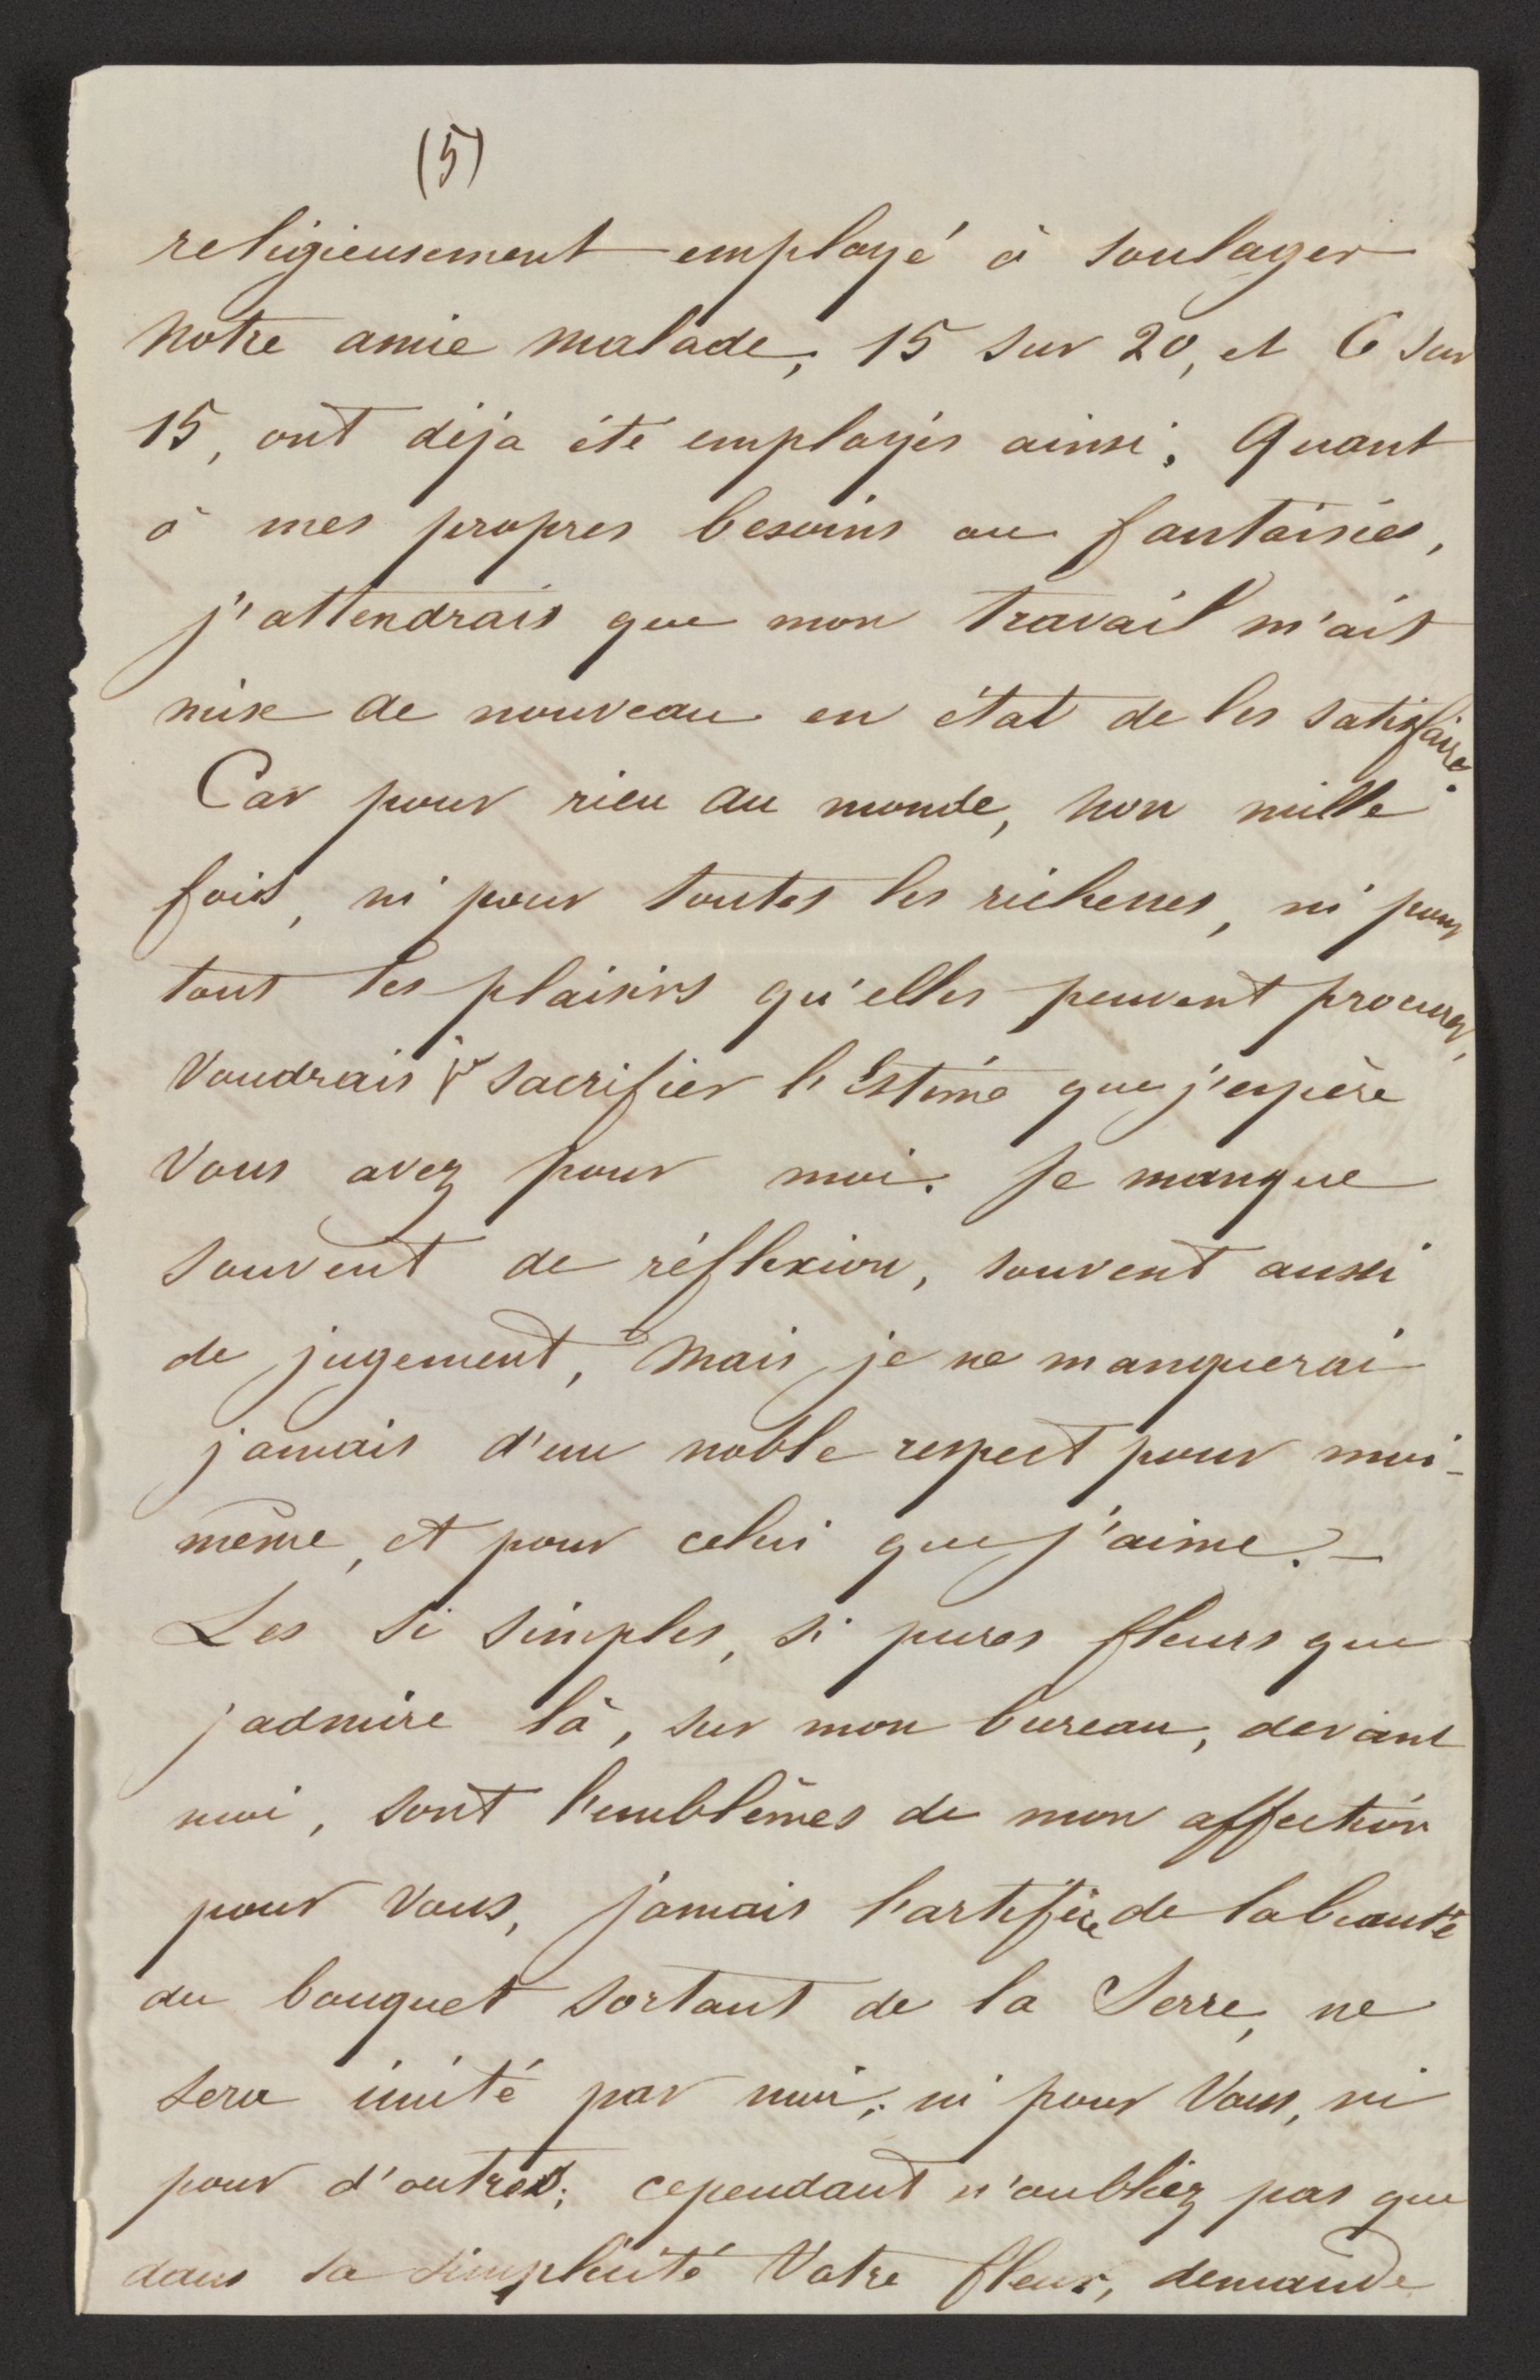 (5)
religieusement employé à soulager
notre amie malade; 15 sur 20, et 6 sur
15, ont déja été employés ainsi. Quant
à mes propres besoins ou fantaisies,
j'attendrais que mon travail m'ait
mise de nouveau en état de les satisfaire.
Car pour rien au monde, non mille
fois, ni pour toutes les richesses, ni pour
tout les plaisirs qu'elles peuvent procurer,
voudrais je sacrifier l'Estime que j'espère
vous avez pour moi. Je manque
souvent de réflexion, souvent aussi
de jugement, mais je ne manquerai
jamais d'un noble respect pour moi-
même, et pour celui que j'aime. –
Les si simples, si pures fleurs que
j'admire là, sur mon bureau, devant
moi, sont l'emblêmes de mon affection
pour vous, jamais l'artifice de la beauté
du bouquet sortant de la Serre, ne
sera imité par moi; ni pour Vous, ni
pour d'autres; cependant n'oubliez pas que
dans sa simplicité Votre fleur, demande